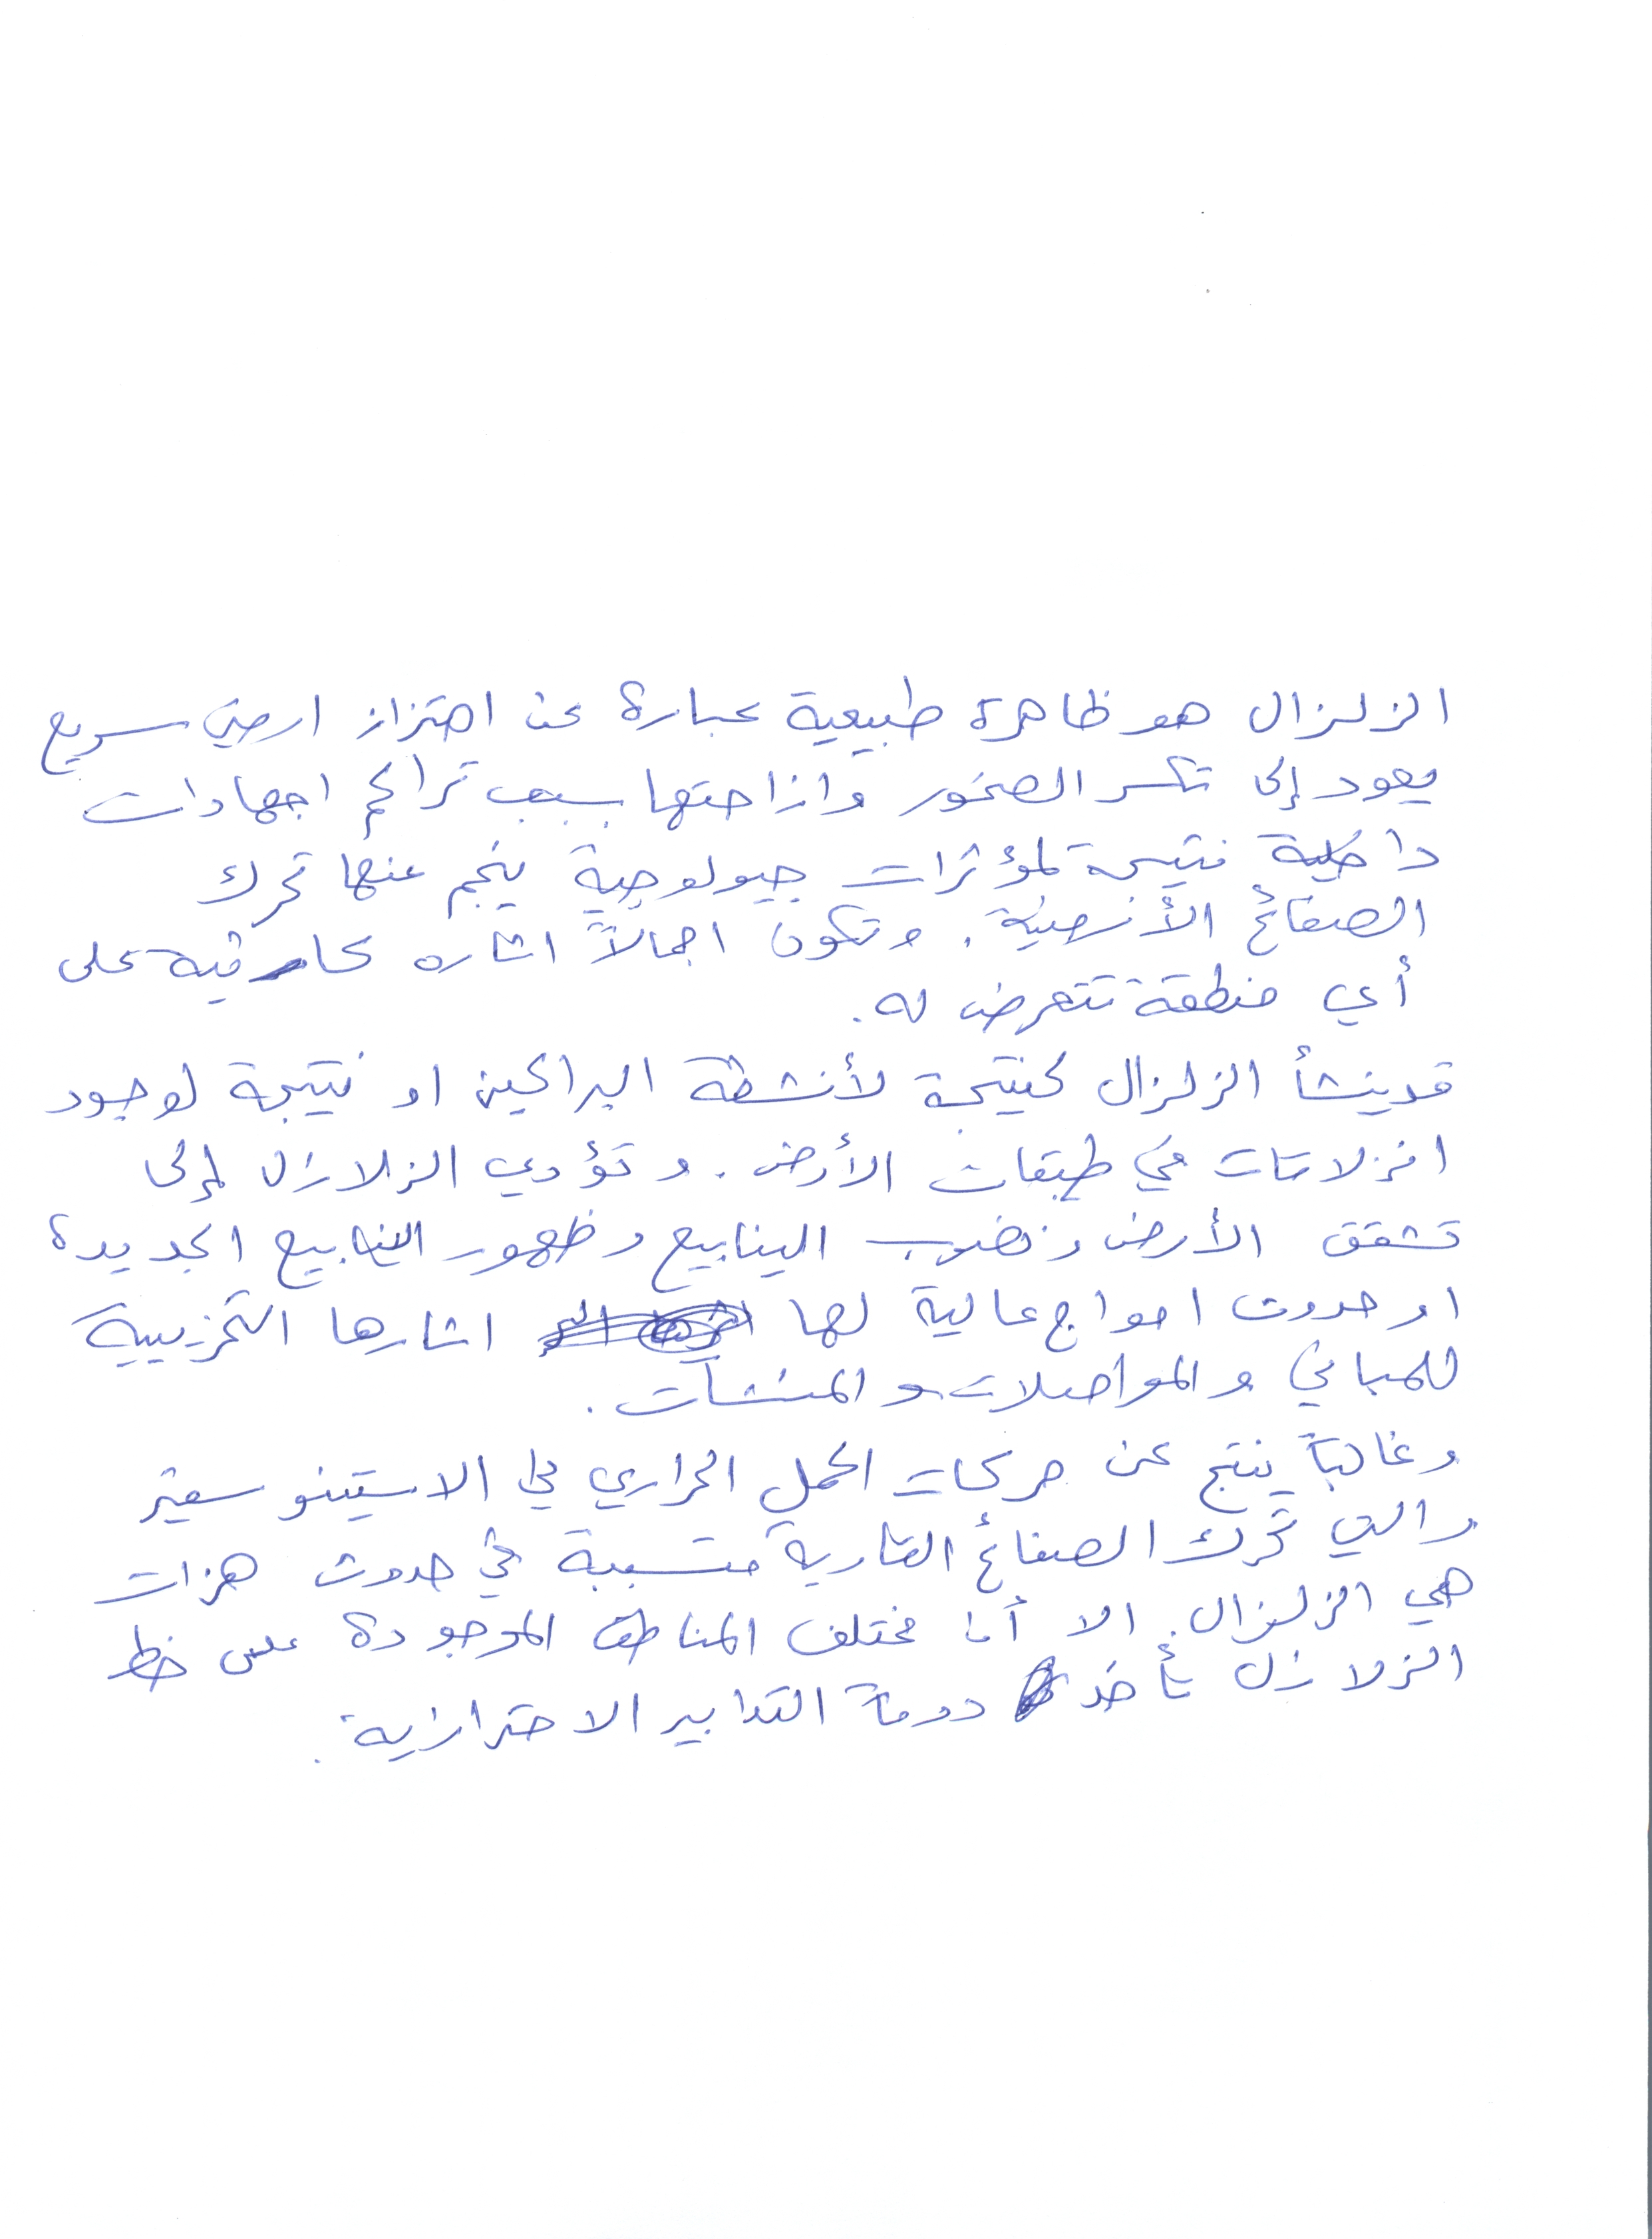 الزلزال هو ظاهرة طبيعية عبارة عن اهتزاز ارضي سريع
يعود إلى تكسر الصخور وازاحتها بسبب تراكم اجهادات
داخلية نتيجة لمؤثرات جيولوجية ينجم عنها تحرك
الصفائح الأرضية. وتكون اجمالاً اثاره كارثية على
أي منطقة تتعرض له.
قد ينشأ الزلزال كنتيجة لأنشطة البراكين او نتيجة لوجود
انزلاقات في طبقات الأرض. و تؤدي الزلازل إلى
تشقق الأرض ونضوب الينابيع وظهور الينابيع الجديدة
او حدوث امواج عالية لها اثارها التخريبية
للمباني و المواصلات و المنشآت.
وغالباً ينتج عن حركات الحمل الحراري في الاستينوسفير
والتي تحرك الصفائح القارية متسببة في حدوث هزات
هي الزلزال. الا أن مختلف المناطق الموجودة على خط
الزلازل تأخذ دوماً التدابير الاحترازية.